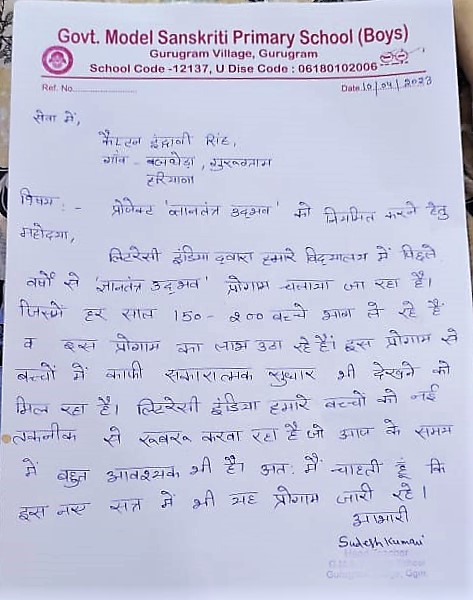 Govt. Model Sanskriti Primary School (Boys)
Gurugram Village, Gurugram
School Code -12137, U Dise Code : 06180102006
Ref. No.
Date 10/04/2023
सेवा में,
कैप्टन इंद्राणी सिंह,
गांव - बजघेड़ा, गुरूग्राम
हरियाणा
विषय :- प्रोजेक्ट 'ज्ञानतंत्र उद्भव' को नियमित करने हेतु
महोदया,
लिटरेसी इंडिया द्वारा हमारे विद्यालय में पिछले
वर्षों से 'ज्ञानतंत्र उद्भव' प्रोग्राम चलाया जा रहा है।
जिसमें हर साल 150-200 बच्चे भाग ले रहे हैं
व इस प्रोग्राम का लाभ उठा रहे हैं। इस प्रोग्राम से
बच्चों में काफी सकारात्मक सुधार भी देखने को
मिल रहा है। लिटरेसी इंडिया हमारे बच्चों को नई
तकनीक से रूबरू करवा रहा है जो आज के समय
में बहुत आवश्यक भी है। अतः मैं चाहती हूँ कि
इस नए सत्र में भी यह प्रोग्राम जारी रहे।
आभारी
Sudesh Kumari
Head Teacher